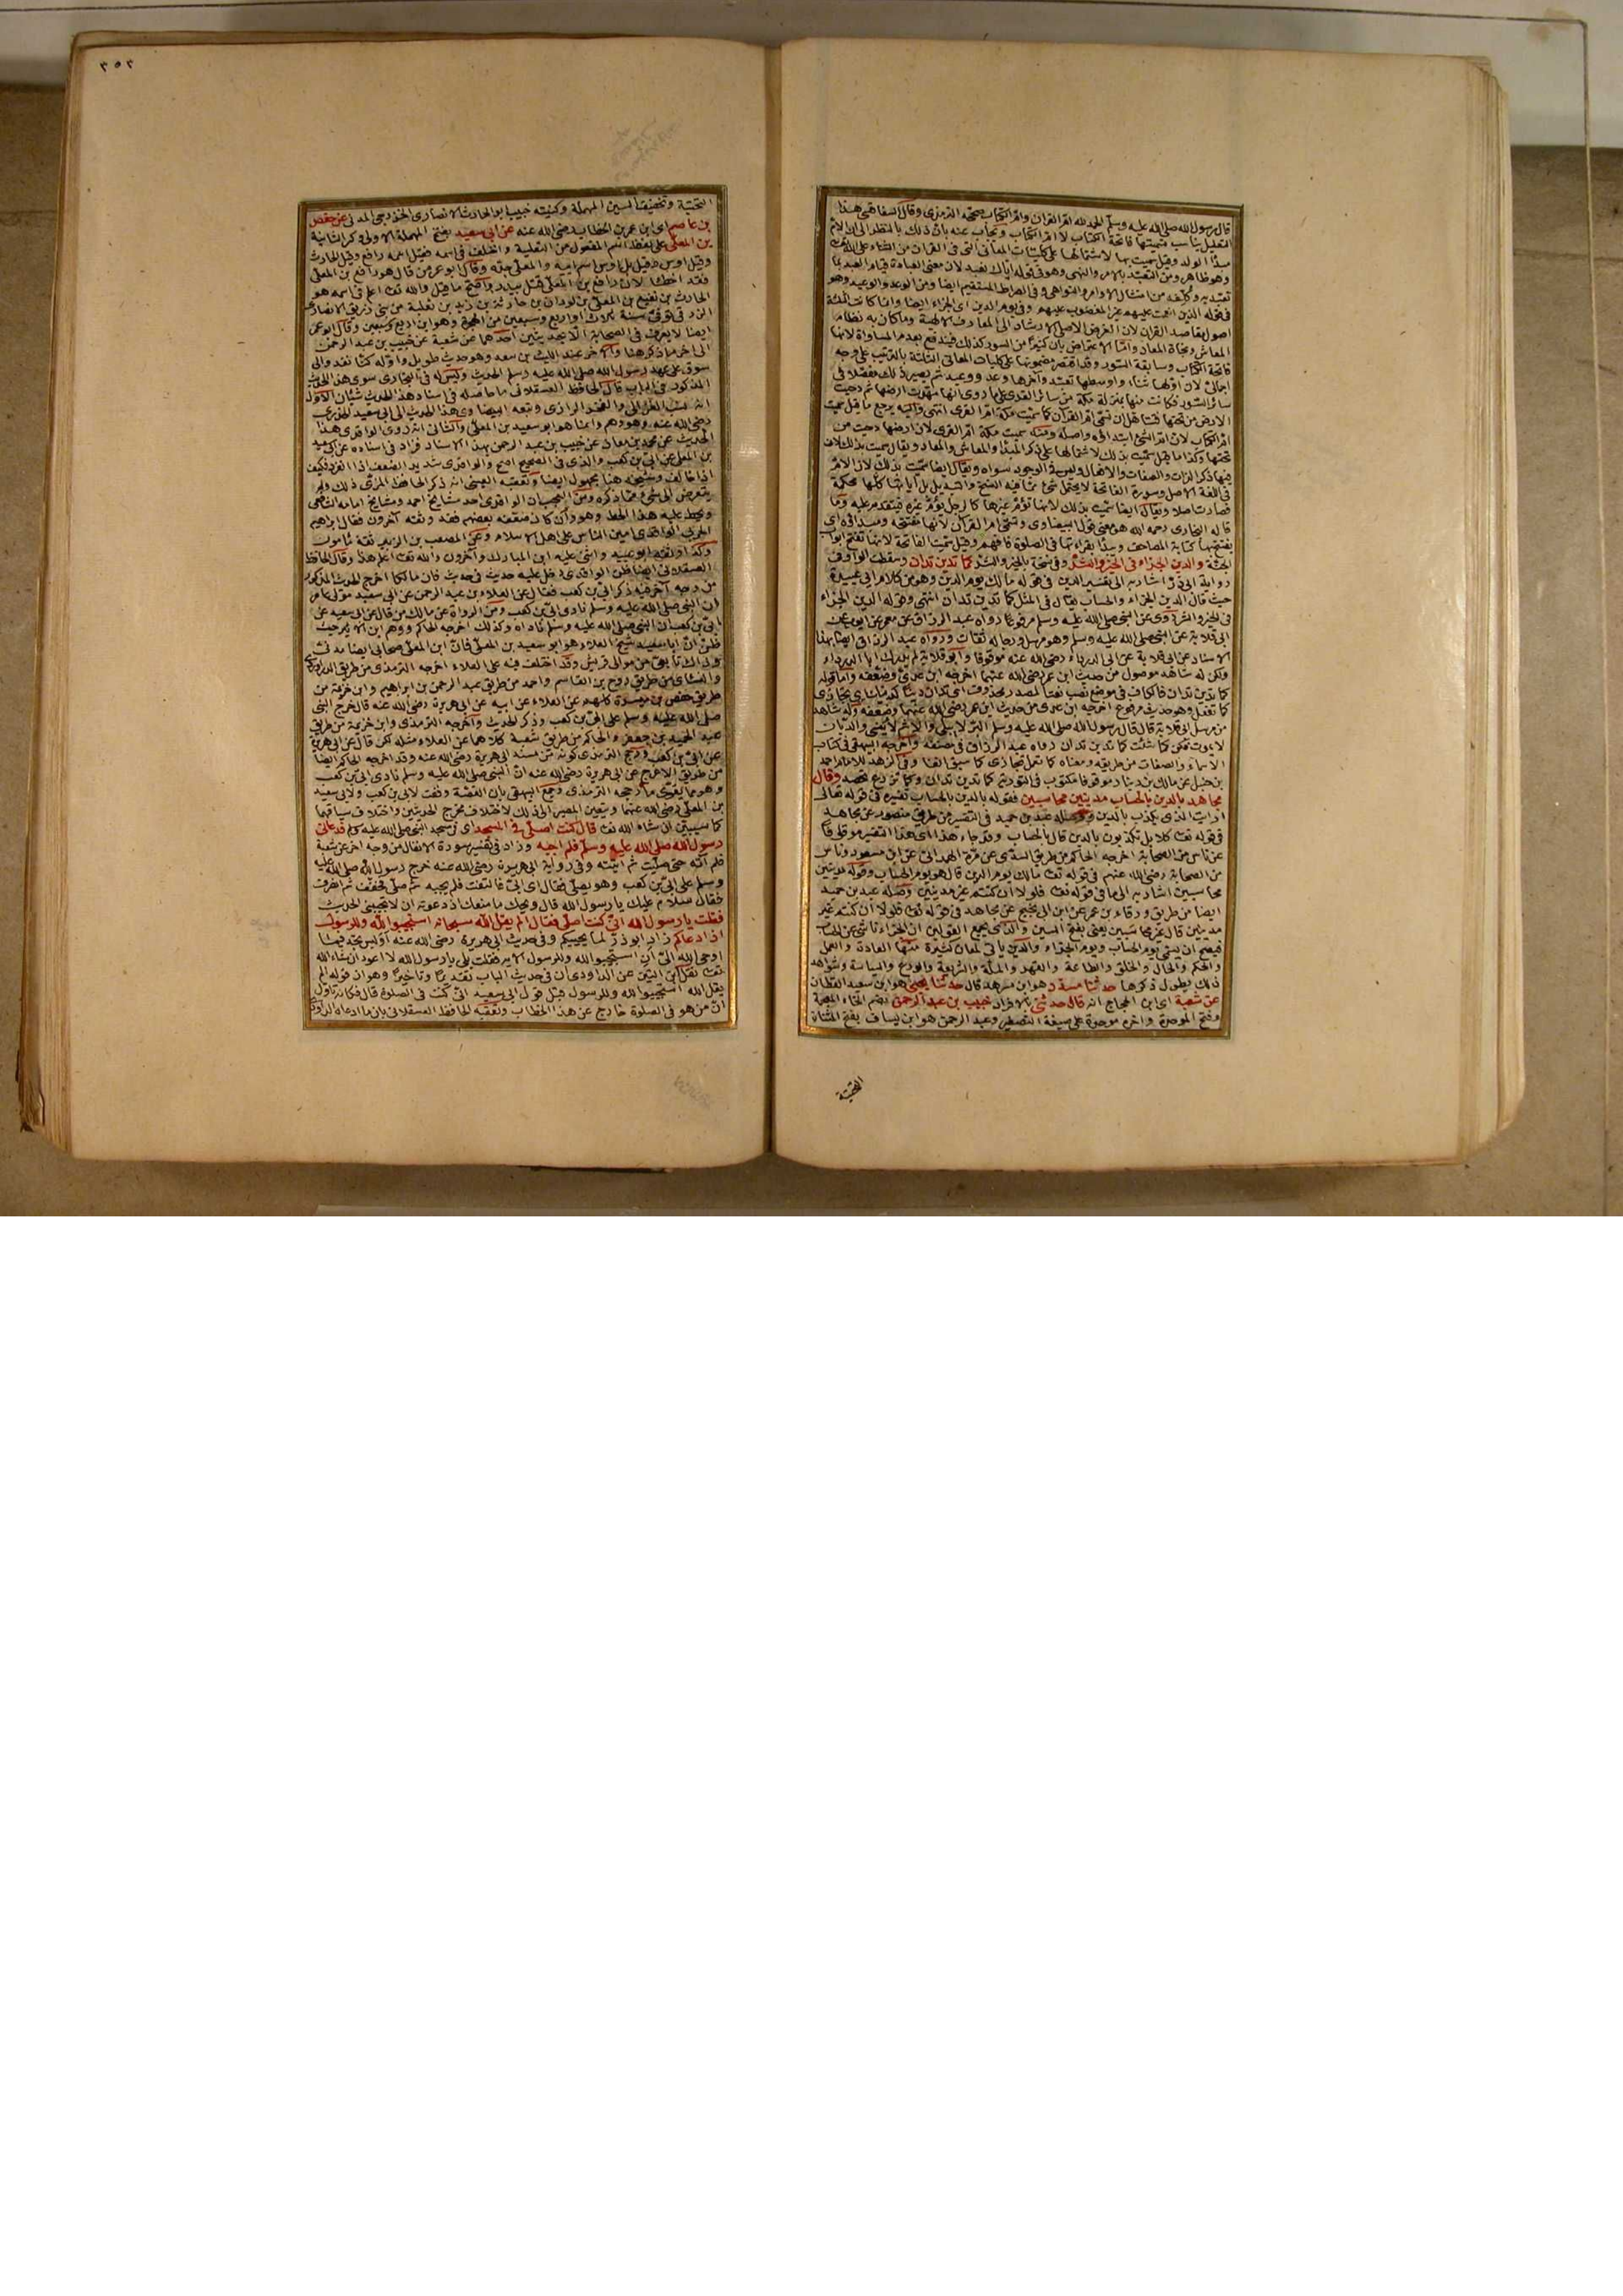 قال رسول الله صلى الله عليه وسلم الحمد لله ام القران وام الكتاب صححه الترمذى وقال السفاقسى هذا
التعليل يناسب تسميتها فاتحة الكتاب لا ام الكتاب ويجاب عنه بان ذلك بالنظر الى ان الام
مبدأ الولد وقيل سميت بها لاشتمالها على كليات المعانى التى فى القران من الثناء على الله
وهو ظاهر ومن التعبد بالامر والنهى وهو فى قوله اياك نعبد لان معنى العبادة قيام العبد بما
تعبد به وكلفه من امتثال الاوامر والنواهى وفى الصراط المستقيم ايضا ومن الوعد والوعيد وهو
فى قوله الذين انعمت عليهم غير المغضوب عليهم وفى يوم الدين اى الجزاء ايضا وانما كانت الثلثة
اصول مقاصد القران لان الغرض الاصلى الارشاد الى المعارف الالهية وما كان به نظام
المعاش ونجاة المعاد واما الاعتراض بان كثيرا من السور كذلك فيندفع بعدم المساواة لانها
فاتحة الكتاب وسابقة السور وقد اقتصر مضمونها على كليات المعانى الثلثة بالترتيب على وجه
اجمالى لان اولها ثناء واوسطها تعبد وآخرها وعد ووعيد ثم يصير ذلك مفصلا فى
سائر السور فكانت منها بمنزلة مكة من سائر القرى على ما روى انها مهدت ارضها ثم دحيت
الارض من تحتها فتتأهل ان تسمى ام القرآن كما سميت مكة ام القرى انتهى واليه يرجع ما قيل سميت
ام الكتاب لان ام الشئ ابتداؤه واصله ومنه سميت مكة ام القرى لان ارضها دحيت من
تحتها وكذا ما قيل سميت بذلك لاشتمالها على ذكر المبدأ والمعاش والمعاد ويقال سميت بذلك لان
فيها ذكر الذات والصفات والافعال وليس فى الوجود سواه ويقال ايضا سميت بذلك لان الام
فى اللغة الاصل وسورة الفاتحة لا يحتمل شئ مما فيه النسخ والتبديل بل آياتها كلها محكمة
فصارت اصلا ويقال ايضا سميت بذلك لانها تؤم غيرها كالرجل يؤم غيره فيتقدم عليه وما
قاله البخارى رحمه الله هو معنى قول البيضاوى وتسمى ام القرآن لانها مفتتحه ومبدأه اى
يفتتح بها كتابة المصاحف ويبدأ بقراءتها فى الصلوة فافهم وقيل سميت الفاتحة لانها تفتح ابواب
الجنة والدين الجزاء فى الخير والشر وفى نسخة بالخير والشر كما تدين تدان وسقطت الواو فى
رواية ابى ذر اشار به الى تفسير الدين فى قوله مالك يوم الدين وهو من كلام ابى عبيدة
حيث قال الدين الجزاء والحساب يقال فى المثل كما تدين تدان انتهى وقوله الدين الجزاء
فى الخير والشر روى عن النبى صلى الله عليه وسلم مرفوعا رواه عبد الرزاق عن معمر عن ايوب عن
ابى قلابة عن النبى صلى الله عليه وسلم وهو مرسل ورجاله ثقات ورواه عبد الرزاق ايضا بهذا
الاسناد عن ابى قلابة عن ابى الدرداء رضى الله عنه موقوفا وابو قلابة لم يدرك ابا الدرداء
ولكن له شاهد موصول من حديث ابن عمر رضى الله عنهما اخرجه ابن عدى وضعفه واما قوله
كما تدين تدان فالكاف فى موضع نصب نعتا لمصدر محذوف اى تدان دينا كدينك اى تجازى
كما تفعل وهو حديث مرفوع اخرجه ابن عدى من حديث ابن عمر رضى الله عنهما وضعفه وله شاهد
من مرسل ابى قلابة قال قال رسول الله صلى الله عليه وسلم البر لا يبلى والاثم لا ينسى والديان
لا يموت فكن كما شئت كما تدين تدان رواه عبد الرزاق فى مصنفه واخرجه البيهقى فى كتاب
الاسماء والصفات من طريقه ومعناه كما تعمل تجازى كما سبق انفا وفى الزهد للامام احمد
بن حنبل عن مالك بن دينار موقوفا مكتوب فى التورية كما تدين تدان وكما تزرع تحصد وقال
مجاهد بالدين بالحساب مدينين محاسبين فقوله بالدين بالحساب تفسيره فى قوله تعالى
ارايت الذى يكذب بالدين ووصله عبد بن حميد فى التفسير من طريق منصور عن مجاهد
فى قوله تعـ كلا بل تكذبون بالدين قال بالحساب وقد جاء هذا اى هذا التفسير موقوفا
عن ناس من الصحابة اخرجه الحاكم من طريق السدى عن مرة الهمدانى عن ابن مسعود وناس
من الصحابة رضى الله عنهم فى قوله تعـ مالك يوم الدين قال هو يوم الحساب وقوله مدينين
محاسبين اشار به الى ما فى قوله تعـ فلولا ان كنتم غير مدينين وصله عبد بن حميد
ايضا من طريق ورقاء بن عمر عن ابن ابى نجيح عن مجاهد فى قوله تعـ فلولا ان كنتم غير
مدينين قال غير محاسبين يعنى بفتح السين والذى يجمع القولين ان الجزاء ناشئ عن الحساب
فيصح ان يسمى يوم الحساب ويوم الجزاء والدين ياتى لمعان كثيرة منها العادة والعمل
والحكم والحال والخلق والطاعة والقهر والملة والشريعة والورع والسياسة وشواهد
ذلك يطول ذكرها حدثنا مسدد هو ابن مسرهد قال حدثنا يحيى هو ابن سعيد القطان
عن شعبة اى ابن الحجاج انه قال حدثنى بالافراد خبيب بن عبد الرحمن بضم الخاء المعجمة
وفتح الموحدة واخره موحدة على صيغة التصغير وعبد الرحمن هو ابن يساف بفتح المثناة
التحتية
٣٥٢
التحتية وتخفيف السين المهملة وكنيته خبيب ابو الحارث الانصارى الخزرجى المدنى عن حفص
بن عاصم اى ابن عمر بن الخطاب رضى الله عنه عن ابى سعيد بفتح المهملة الاولى وكسر الثانية
بن المعلى على لفظ اسم المفعول من التعلية واختلف فى اسمه فقيل اسمه رافع وقيل الحارث
وقيل اوس وقيل بل اوس اسم ابيه والمعلى جده وقال ابو عمر من قال هو رافع بن المعلى
فقد اخطأ لان رافع بن المعلى قتل ببدر واصح ما قيل والله تعـ اعلم فى اسمه هو
الحارث بن نفيع بن المعلى بن لوذان بن حارثة بن زيد بن ثعلبة من بنى زريق الانصارى
الزرقى توفى سنة ثلاث او اربع وسبعين من الهجرة وهو ابن اربع وستين وقال ابو عمر
ايضا لا يعرف فى الصحابة الا بحديثين احدهما عن شعبة عن خبيب بن عبد الرحمن
الى اخر ما ذكر هنا والاخر عند الليث بن سعد وهو حديث طويل واوله كنا نغدو الى
سوق على عهد رسول الله صلى الله عليه وسلم الحديث وليس له فى البخارى سوى هذا الحديث
المذكور فى الباب قال الحافظ العسقلانى ما حاصله فى اسناد هذا الحديث شيئان الاول
انه نسب الغزالى والفخر الرازى وتبعه البيضاوى هذا الحديث الى ابى سعيد الخدرى
رضى الله عنه وهو وهم وانما هو ابو سعيد بن المعلى والثانى انه روى الواقدى هذا
الحديث عن محمد بن معاذ عن خبيب بن عبد الرحمن بهذا الاسناد فزاد فى اسناده عن ابى سعيد
بن المعلى عن ابى بن كعب والذى فى الصحيح اصح والواقدى شديد الضعف اذا انفرد فكيف
اذا خالف وشيخه هنا مجهول ايضا وتعقبه العينى انه ذكر الحافظ المزى ذلك ولم
يتعرض الى شئ مما ذكره ومن العجب ان الواقدى احد مشايخ احمد ومشايخ امامه الشافعى
ويحط عليه هذا الحط وهو وان كان ضعفه بعضهم فقد وثقه آخرون فقال ابراهيم
الحربى الواقدى امين الناس على اهل الاسلام وعن المصعب بن الزبير ثقة مأمون
وكذا وثقه ابو عبيد واثنى عليه ابن المبارك وآخرون والله تعـ اعلم هذا وقال الحافظ
العسقلانى ايضا ظن الواقدى دخل عليه حديث فى حديث فان مالكا اخرج الحديث المذكور
من وجه آخر فيه ذكر ابى بن كعب فقال عن العلاء بن عبد الرحمن عن ابى سعيد مولى عامر
ان النبى صلى الله عليه وسلم نادى ابى بن كعب ومن الرواة عن مالك من قال عن ابى سعيد عن
ابى بن كعب ان النبى صلى الله عليه وسلم ناداه وكذلك اخرجه الحاكم ووهم ابن الاثير حيث
ظن ان ابا سعيد شيخ العلاء هو ابو سعيد بن المعلى فان ابن المعلى صحابى انصارى مدنى
وذاك تابعى من موالى قريش وقد اختلف فيه على العلاء اخرجه الترمذى من طريق الدراوردى
والنسائى من طريق روح بن القاسم واحمد من طريق عبد الرحمن بن ابراهيم وابن خزيمة من
طريق حفص بن ميسرة كلهم عن العلاء عن ابيه عن ابى هريرة رضى الله عنه قال خرج النبى
صلى الله عليه وسلم على ابى بن كعب وذكر الحديث واخرجه الترمذى وابن خزيمة من طريق
عبد الحميد بن جعفر والحاكم من طريق شعبة كلاهما عن العلاء مثله لكن قال عن ابى هريرة
عن ابى بن كعب ورجح الترمذى كونه من مسند ابى هريرة رضى الله عنه وقد اخرجه الحاكم ايضا
من طريق الاعرج عن ابى هريرة رضى الله عنه ان النبى صلى الله عليه وسلم نادى ابى بن كعب
وهو مما يقوى ما رجحه الترمذى وجمع البيهقى بان القصة وقعت لابى بن كعب ولابى سعيد
بن المعلى رضى الله عنهما ويتعين المصير الى ذلك لاختلاف مخرج الحديثين واختلاف سياقهما
كما سيبين ان شاء الله تعـ قال كنت اصلى فى المسجد اى فى مسجد النبى صلى الله عليه وسلم فدعانى
رسول الله صلى الله عليه وسلم فلم اجبه وزاد فى تفسير سورة الانفال من وجه اخر عن شعبة
فلم آته حتى صليت ثم اتيته وفى رواية ابى هريرة رضى الله عنه خرج رسول الله صلى الله عليه
وسلم على ابى بن كعب وهو يصلى فقال اى ابى فالتفت فلم يجبه ثم صلى فخفف ثم انصرف
فقال سلام عليك يا رسول الله قال ويحك ما منعك اذ دعوتك ان لا تجيبنى الحديث
فقلت يا رسول الله انى كنت اصلى فقال الم يقل الله سبحانه استجيبوا لله وللرسول
اذا دعاكم زاد ابو ذر لما يحييكم وفى حديث ابى هريرة رضى الله عنه اوليس تجد فيما
اوحى الله الى ان استجيبوا لله وللرسول الاية فقلت بلى يا رسول الله لا اعود ان شاء الله
تعـ نقل ابن التين عن الداودى ان فى حديث الباب تقديما وتأخيرا وهو ان قوله الم
يقل الله استجيبوا لله وللرسول قبل قول ابى سعيد انى كنت فى الصلوة قال فكأنه تأول
ان من هو فى الصلوة خارج عن هذا الخطاب وتعقبه الحافظ العسقلانى بان ما ادعاه الداودى